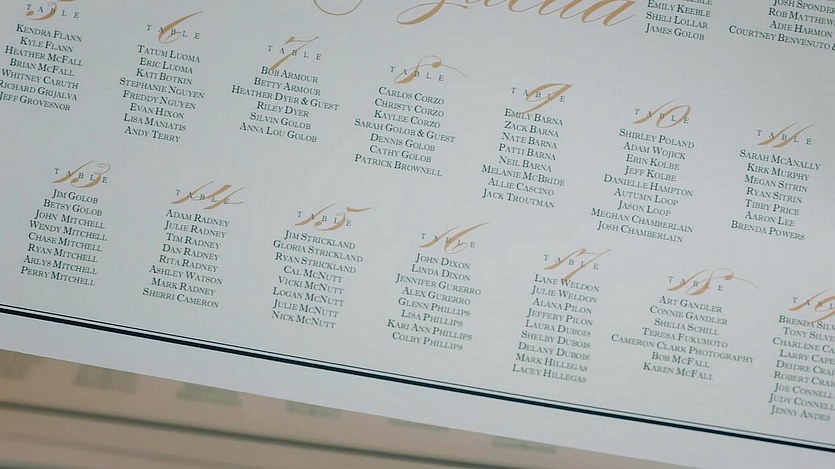 Emily Keeble
Sheli Lollar
James Golob
Josh Sponder
Rob Matthew
Adie Harmon
Courtney Benvenuto &
TABLE 5
Kendra Flann
Kyle Flann
Heather McFall
Brian McFall
Whitney Caruth
Richard Grijalva
Jeff Grovesnor
TABLE 6
Tatum Luoma
Eric Luoma
Kati Botkin
Stephanie Nguyen
Freddy Nguyen
Evan Hixon
Lisa Maniatis
Andy Terry
TABLE 7
Bob Armour
Betty Armour
Heather Dyer & Guest
Riley Dyer
Silvin Golob
Anna Lou Golob
TABLE 8
Carlos Corzo
Christy Corzo
Kaylee Corzo
Sarah Golob & Guest
Dennis Golob
Cathy Golob
Patrick Brownell
TABLE 9
Emily Barna
Zack Barna
Nate Barna
Patti Barna
Neil Barna
Melanie McBride
Allie Cascino
Jack Troutman
TABLE 10
Shirley Poland
Adam Wojick
Erin Kolbe
Jeff Kolbe
Danielle Hampton
Autumn Loop
Jason Loop
Meghan Chamberlain
Josh Chamberlain
TABLE 11
Sarah McAnally
Kirk Murphy
Megan Sitrin
Ryan Sitrin
Tibby Price
Aaron Lee
Brenda Powers
TABLE 13
Jim Golob
Betsy Golob
John Mitchell
Wendy Mitchell
Chase Mitchell
Ryan Mitchell
Arlys Mitchell
Perry Mitchell
TABLE 14
Adam Radney
Julie Radney
Tim Radney
Dan Radney
Rita Radney
Ashley Watson
Mark Radney
Sherri Cameron
TABLE 15
Jim Strickland
Gloria Strickland
Ryan Strickland
Cal McNutt
Vicki McNutt
Logan McNutt
Julie McNutt
Nick McNutt
TABLE 16
John Dixon
Linda Dixon
Jennifer Gurerro
Alex Gurerro
Glenn Phillips
Lisa Phillips
Kari Ann Phillips
Colby Phillips
TABLE 17
Lane Weldon
Julie Weldon
Alana Pilon
Jeffery Pilon
Laura Dubois
Shelby Dubois
Delany Dubois
Mark Hillegas
Lacey Hillegas
TABLE 18
Art Gandler
Connie Gandler
Shelia Schill
Teresa Fukumoto
Cameron Clark Photography
Bob McFall
Karen McFall
Brenda
Tony
Larry
Deidre
Robert
Joe Connell
Judy Connell
Jenny Andes